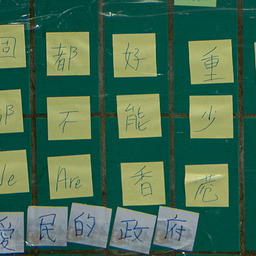 個 都 好 重
都 不 能 少
We Are 香 港
愛 民 的 政 府